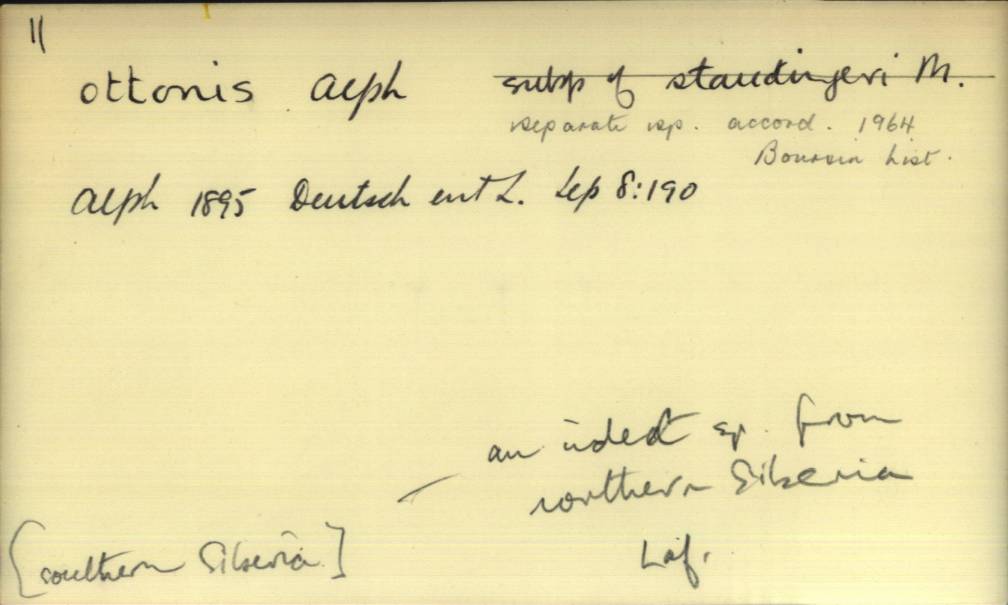 11
ottonis Alph subsp of staudingeri M.
separate sp. accord. 1964
Boursin List.
Alph 1895 Deutsch ent Z. Lep 8:190
an indet sp. from
northern Siberia
[southern Siberia]
Laf.